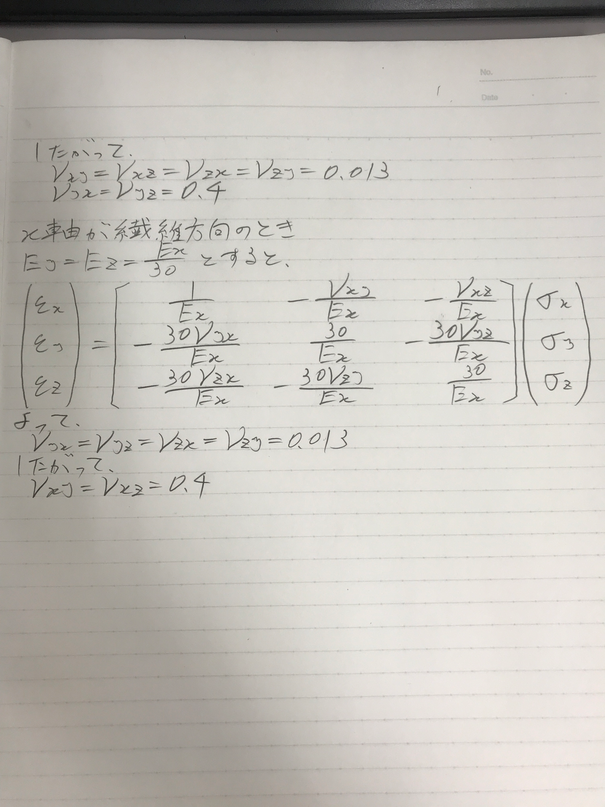 No.
Date
したがって、
ν_xy = ν_xz = ν_zx = ν_zy = 0.013
ν_yx = ν_yz = 0.4
x軸が繊維方向のとき
E_y = E_z = E_x/30 とすると、
(ε_x) = [1/E_x -ν_xy/E_x -ν_xz/E_x] (σ_x)
(ε_y) = [-30ν_yx/E_x 30/E_x -30ν_yz/E_x] (σ_y)
(ε_z) = [-30ν_zx/E_x -30ν_zy/E_x 30/E_x] (σ_z)
よって、
ν_yx = ν_yz = ν_zx = ν_zy = 0.013
したがって、
ν_xy = ν_xz = 0.4